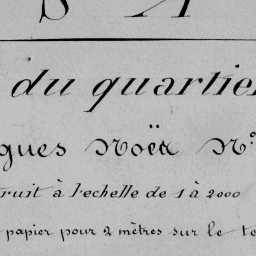 S A
du quartier
gues Noël N°
ruit à l'echelle de 1 à 2000
papier pour 2 mètres sur le te